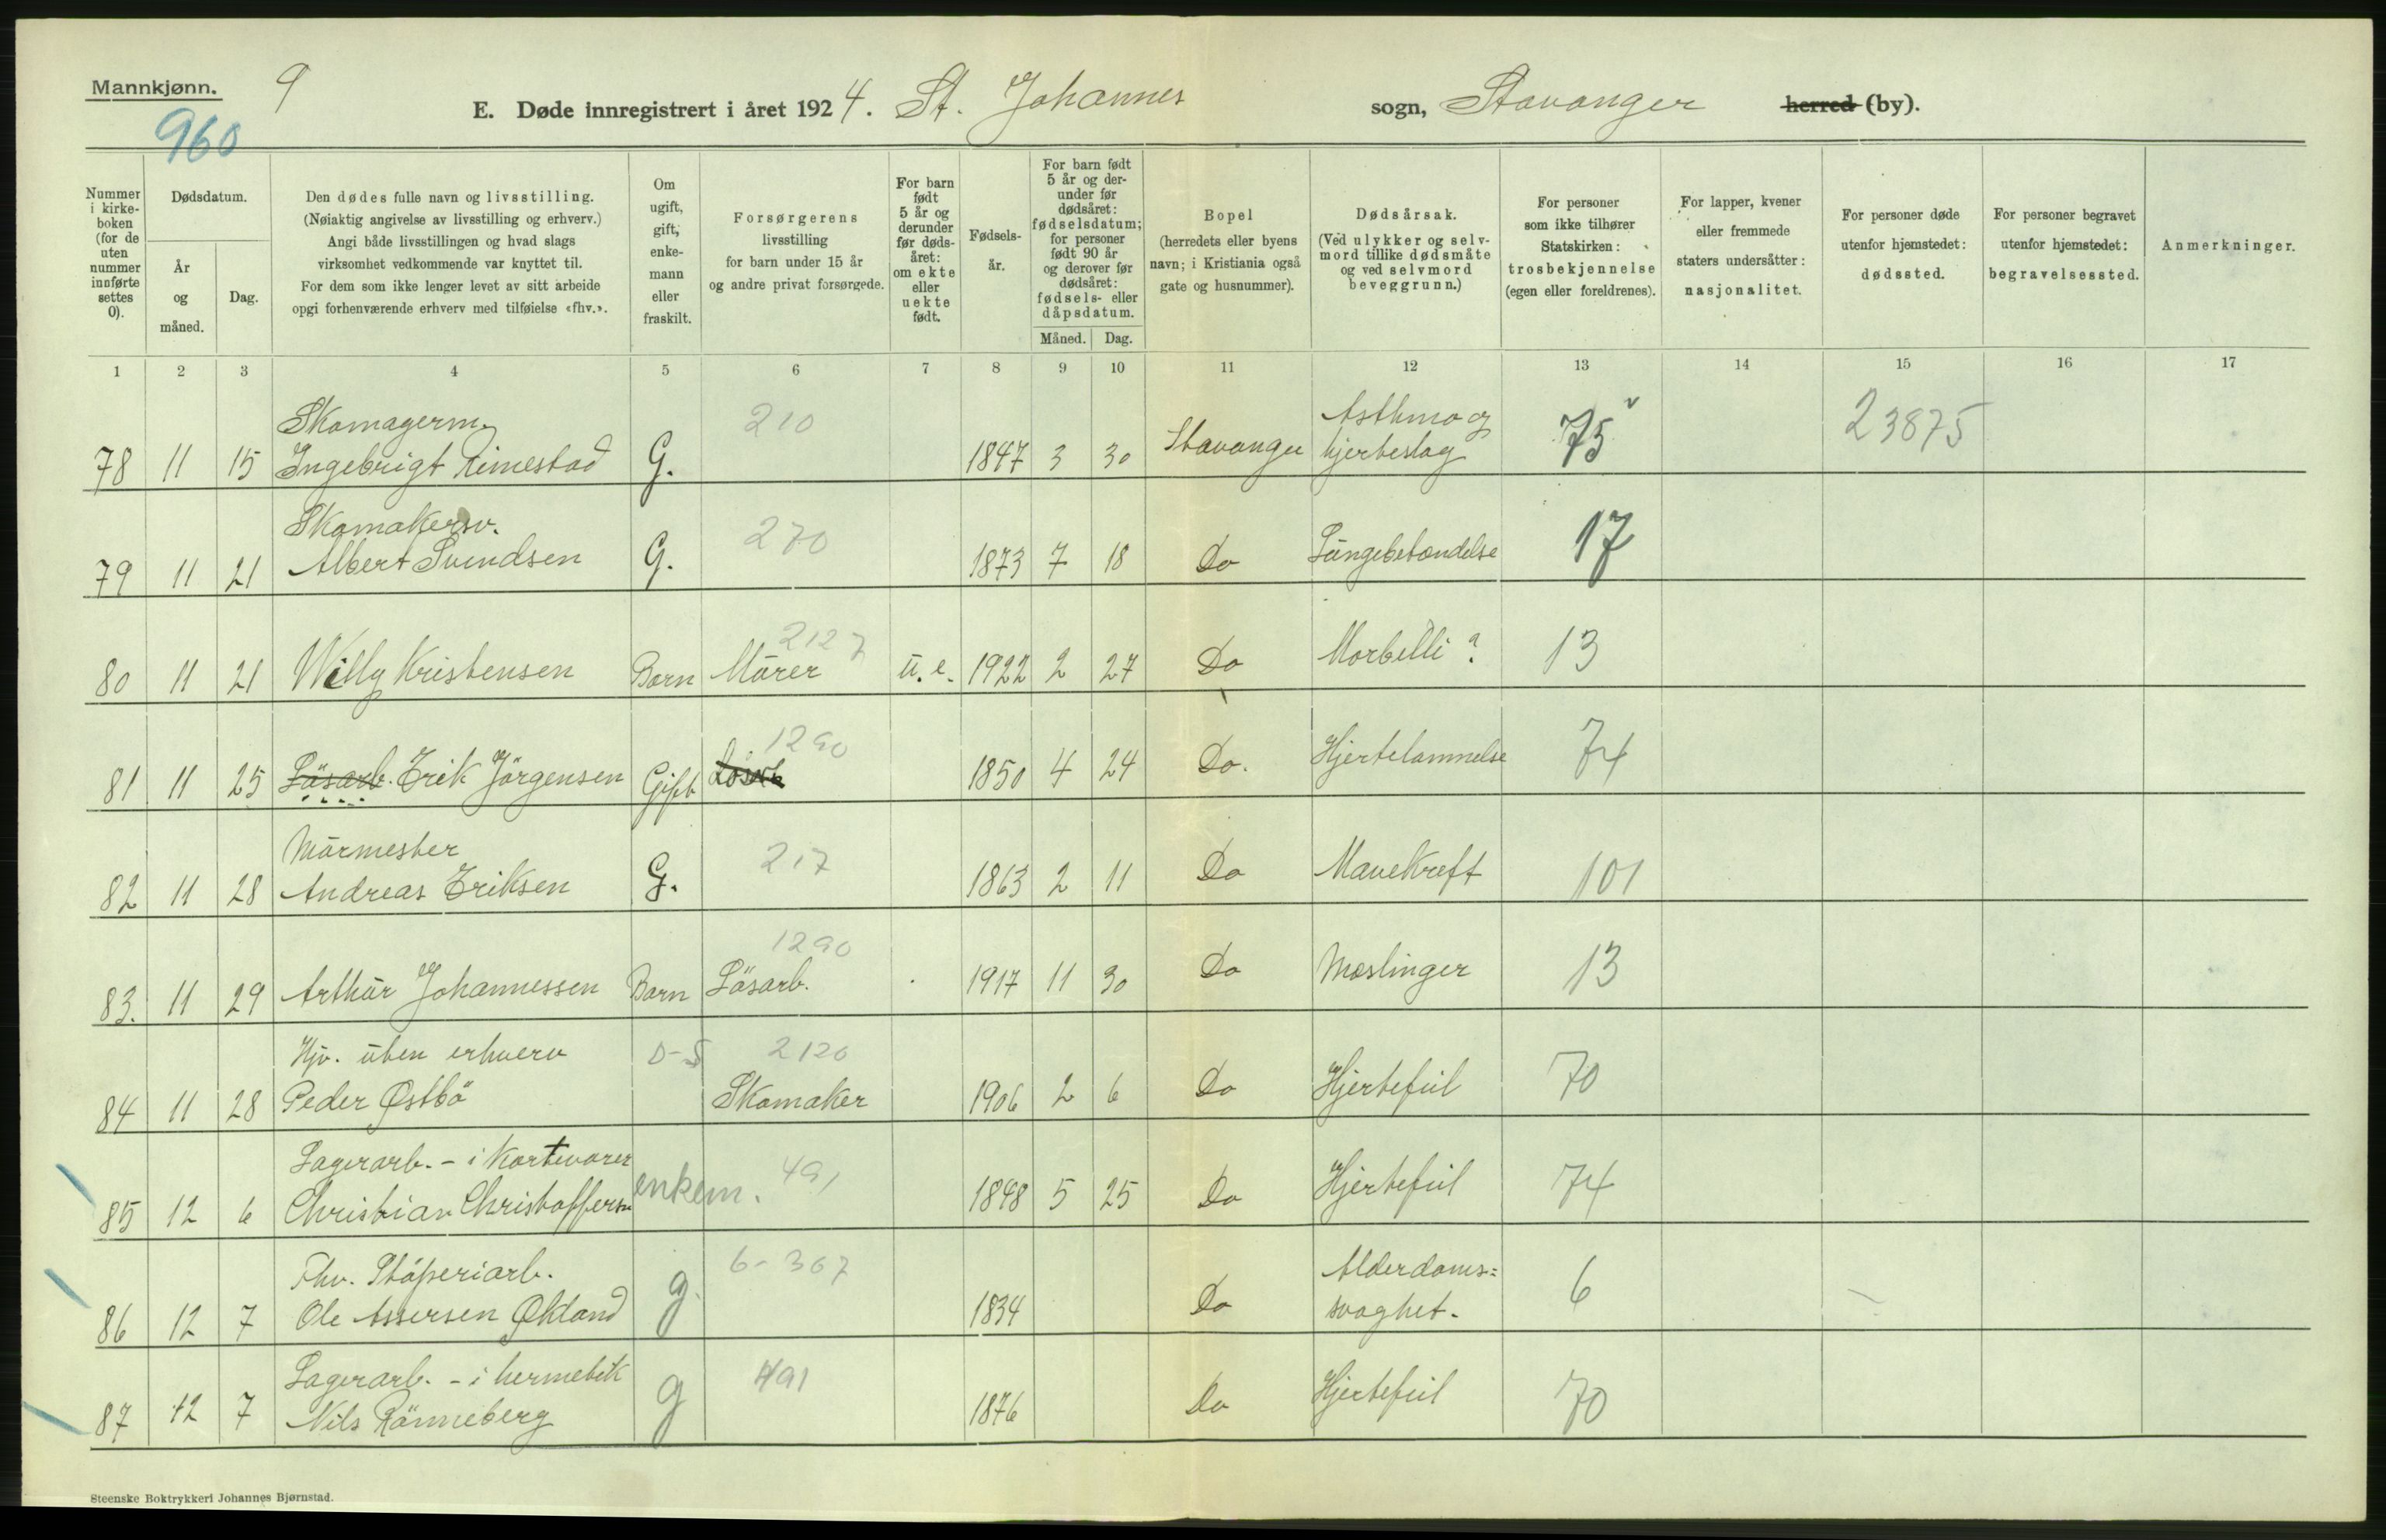 Mannkjønn.
9
960
E. Døde innregistrert i året 1924. St. Johannes sogn, Stavanger herred (by).
Nummer i kirkeboken (for de uten nummer innførte settes 0).
Dødsdatum.
År og måned.
Dag.
Den dødes fulle navn og livsstilling.
(Nøiaktig angivelse av livsstilling og erhverv.)
Angi både livsstillingen og hvad slags
virksomhet vedkommende var knyttet til.
For dem som ikke lenger levet av sitt arbeide
opgi forhenværende erhverv med tilføielse «fhv.».
Om ugift, gift, enkemann eller fraskilt.
Forsørgerens
livsstilling
for barn under 15 år
og andre privat forsørgede.
For barn født 5 år og derunder før dødsåret: om ekte eller uekte født.
Fødselsår.
For barn født 5 år og derunder før dødsåret: fødselsdatum; for personer født 90 år og derover før dødsåret: fødsels- eller dåpsdatum.
Måned. Dag.
Bopel
(herredets eller byens
navn; i Kristiania også
gate og husnummer).
Dødsårsak.
(Ved ulykker og selvmord tillike dødsmåte og ved selvmord beveggrunn.)
For personer
som ikke tilhører
Statskirken:
trosbekjennelse
(egen eller foreldrenes).
For lapper, kvener
eller fremmede
staters undersåtter:
nasjonalitet.
For personer døde
utenfor hjemstedet:
dødssted.
For personer begravet
utenfor hjemstedet:
begravelsessted.
Anmerkninger.
1 2 3 4 5 6 7 8 9 10 11 12 13 14 15 16 17
Skomagerm. 210 Asthma og 23875
78 11 15 Ingebrigt Rimestad G. 1847 3 30 Stavanger hjerteslag 75
Skomakersv. 270
79 11 21 Albert Svendsen G. 1873 7 18 Do Lungebetændelse 17
2127
80 11 21 Willy Kristensen Barn Murer u. e. 1922 2 27 Do Morbilli? 13
1290
81 11 25 Løsarb. Erik Jørgensen Gift Løsarb 1850 4 24 Do. Hjertelammelse 74
Murmester 217
82 11 28 Andreas Eriksen G. 1863 2 11 Do Mavekreft 101
1290
83. 11 29 Arthur Johannessen Barn Løsarb. 1917 11 30 Do Meslinger 13
Hjv. uten erhverv D-S 2126
84 11 28 Peder Østbø Skomaker 1906 2 6 Do Hjertefeil 70
Lagerarb. - i Kortevarer 491
85 12 6 Christian Christoffersen enkem. 1848 5 25 Do Hjertefeil 74
Fhv. Støperiarb. 6-367 Alderdoms=
86 12 7 Ole Assersen Økland g. 1834 Do svaghet. 6
Lagerarb. - i hermetik 491
87 12 7 Nils Rønneberg g 1876 Do Hjertefeil 70
Steenske Boktrykkeri Johannes Bjørnstad.